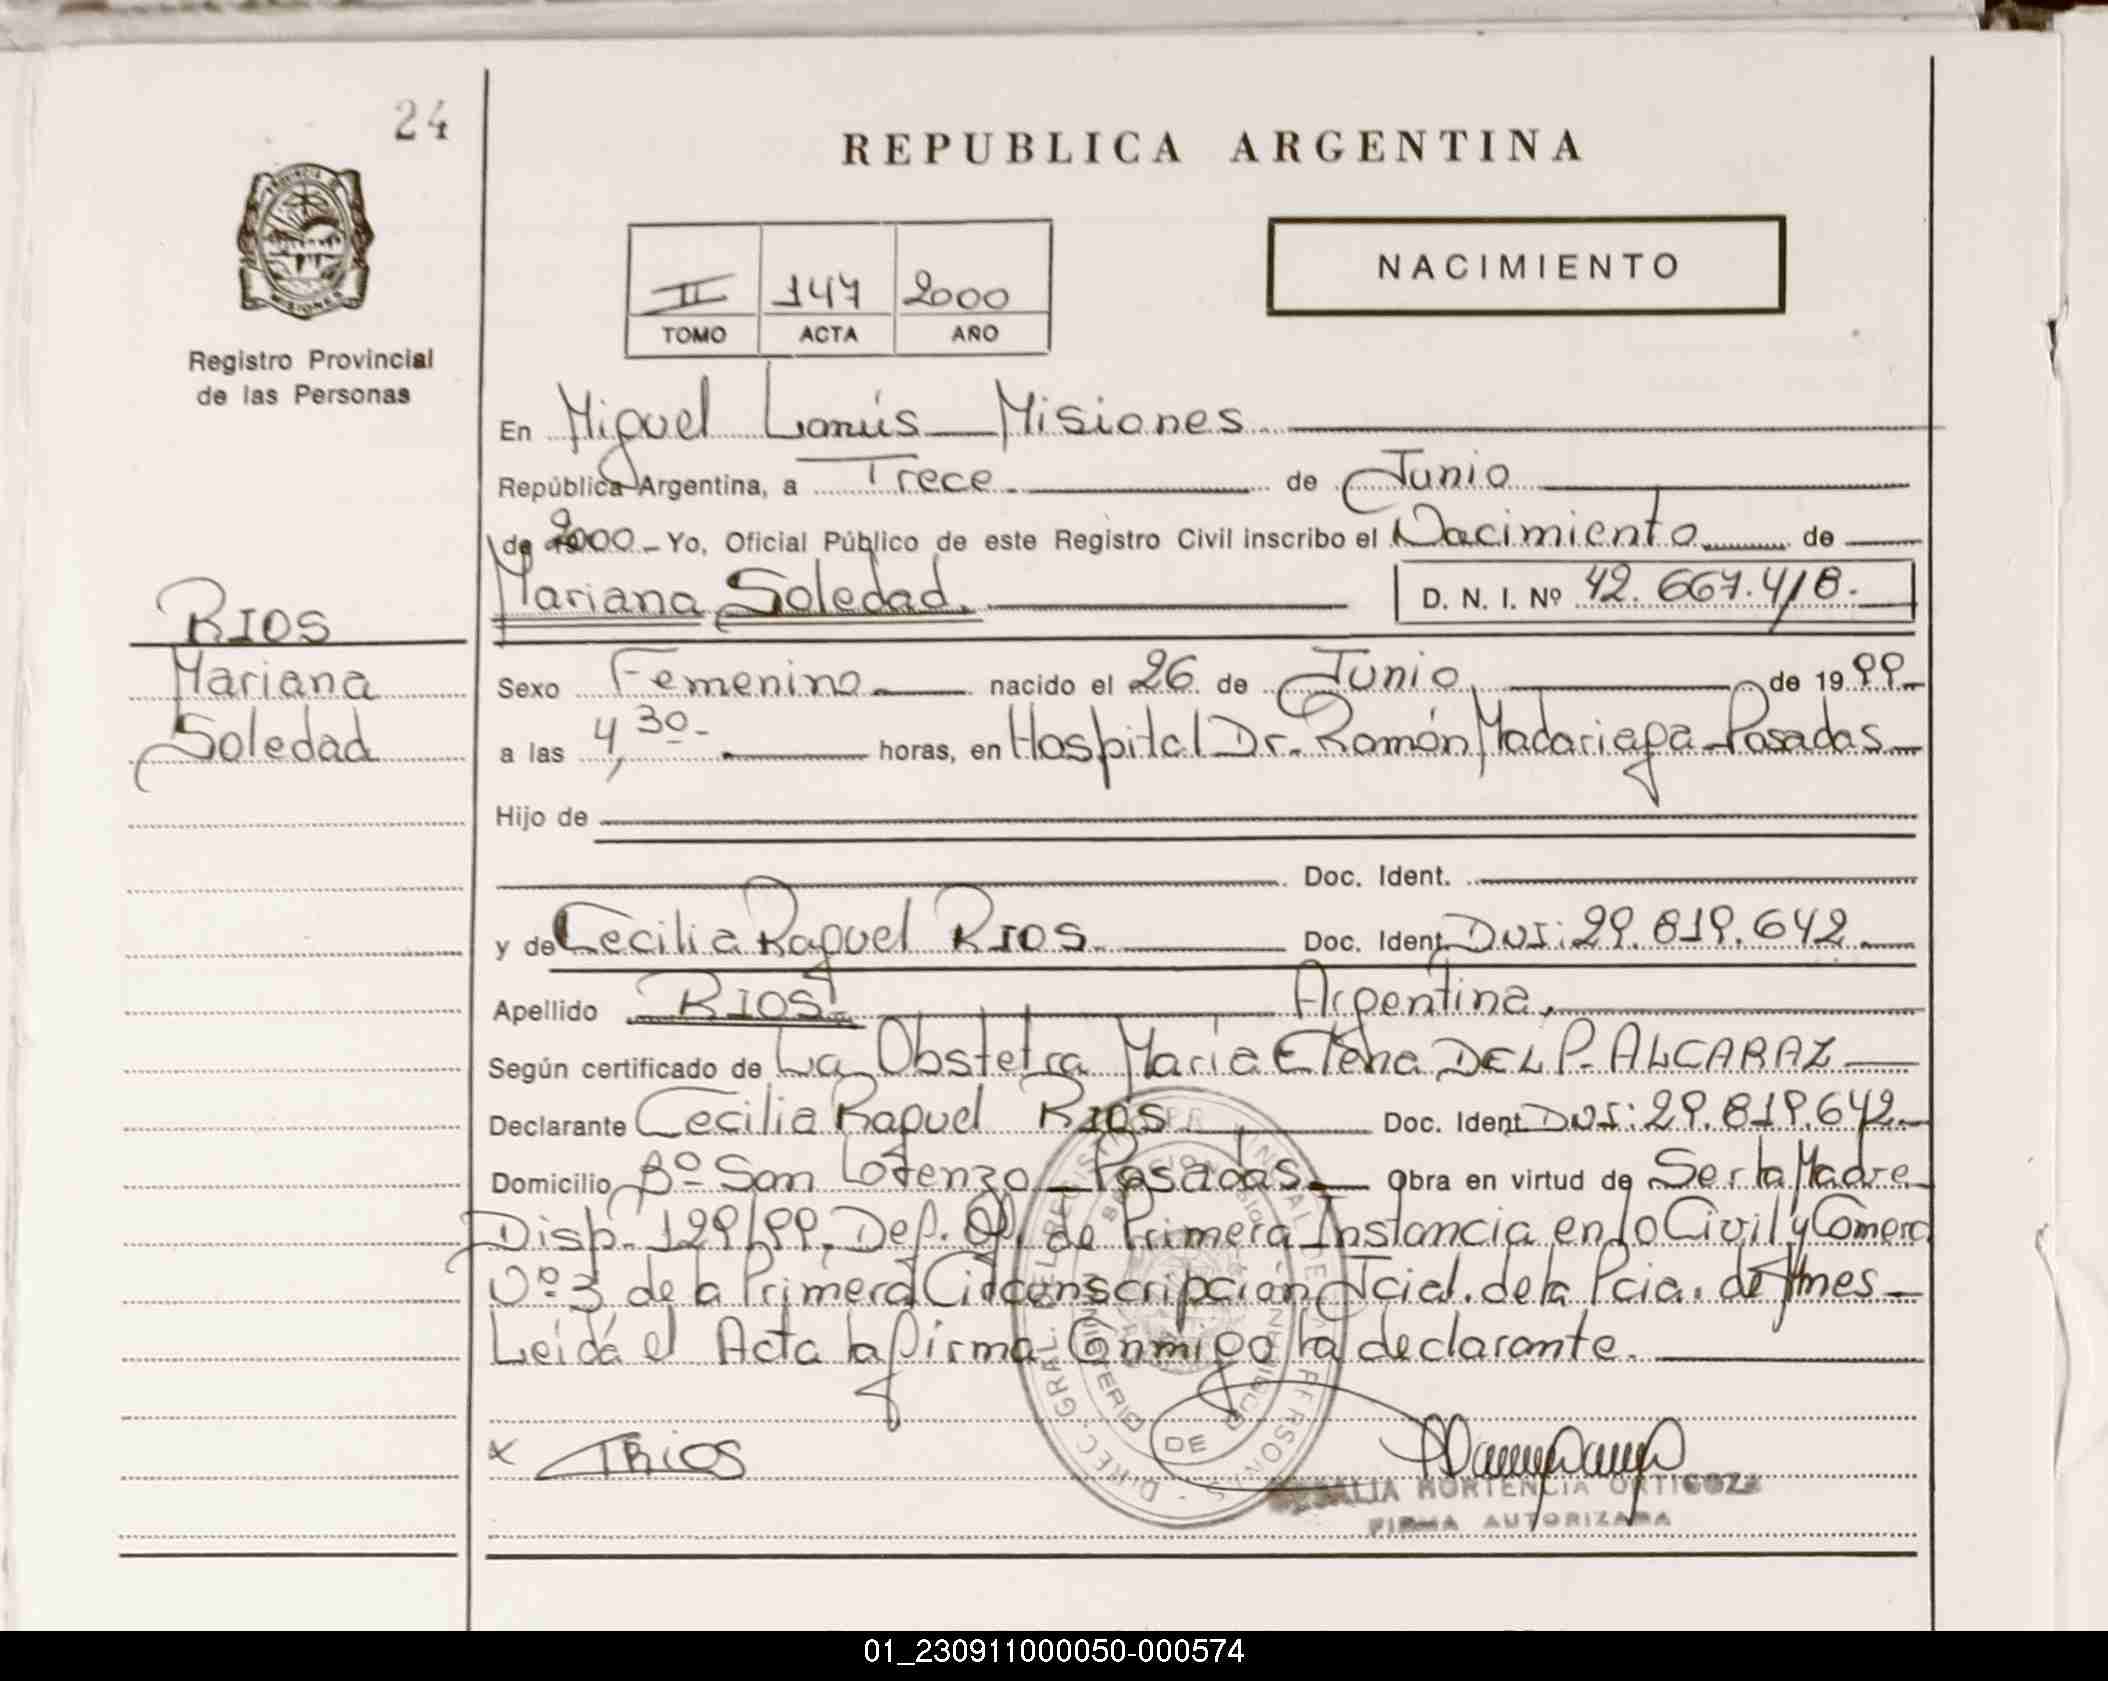 24
REPUBLICA ARGENTINA
PROVINCIA DE MISIONES
Registro Provincial
de las Personas
II 147 2000
TOMO ACTA AÑO
NACIMIENTO
En Miguel Lanús Misiones
República Argentina, a Trece de Junio
de 2000 - Yo, Oficial Público de este Registro Civil inscribo el Nacimiento de
Mariana Soledad. D. N. I. Nº 42.667.418.-
RIOS
Mariana
Soledad
Sexo Femenino nacido el 26 de Junio de 1999-
a las 4,30- horas, en Hospital Dr. Ramón Madariaga - Posadas
Hijo de
Doc. Ident.
y de Cecilia Raquel RIOS. Doc. Ident. DNI: 29.819.642
Apellido RIOS Argentina.
Según certificado de La Obstetra María Elena DEL P. ALCARAZ
Declarante Cecilia Raquel RIOS Doc. Ident. DNI: 29.819.642
Domicilio Bº San Lorenzo - Posadas. Obra en virtud de Ser la Madre
Disp. 129/99. Def. Of. de Primera Instancia en lo Civil y Comerc
Nº 3 de la Primera Circunscripcion Jcial. de la Pcia. de Mnes
Leída el Acta la firma Conmigo la declarante.
x RIOS
HORTENCIA ORTIGOZA
FIRMA AUTORIZADA
01_230911000050-000574